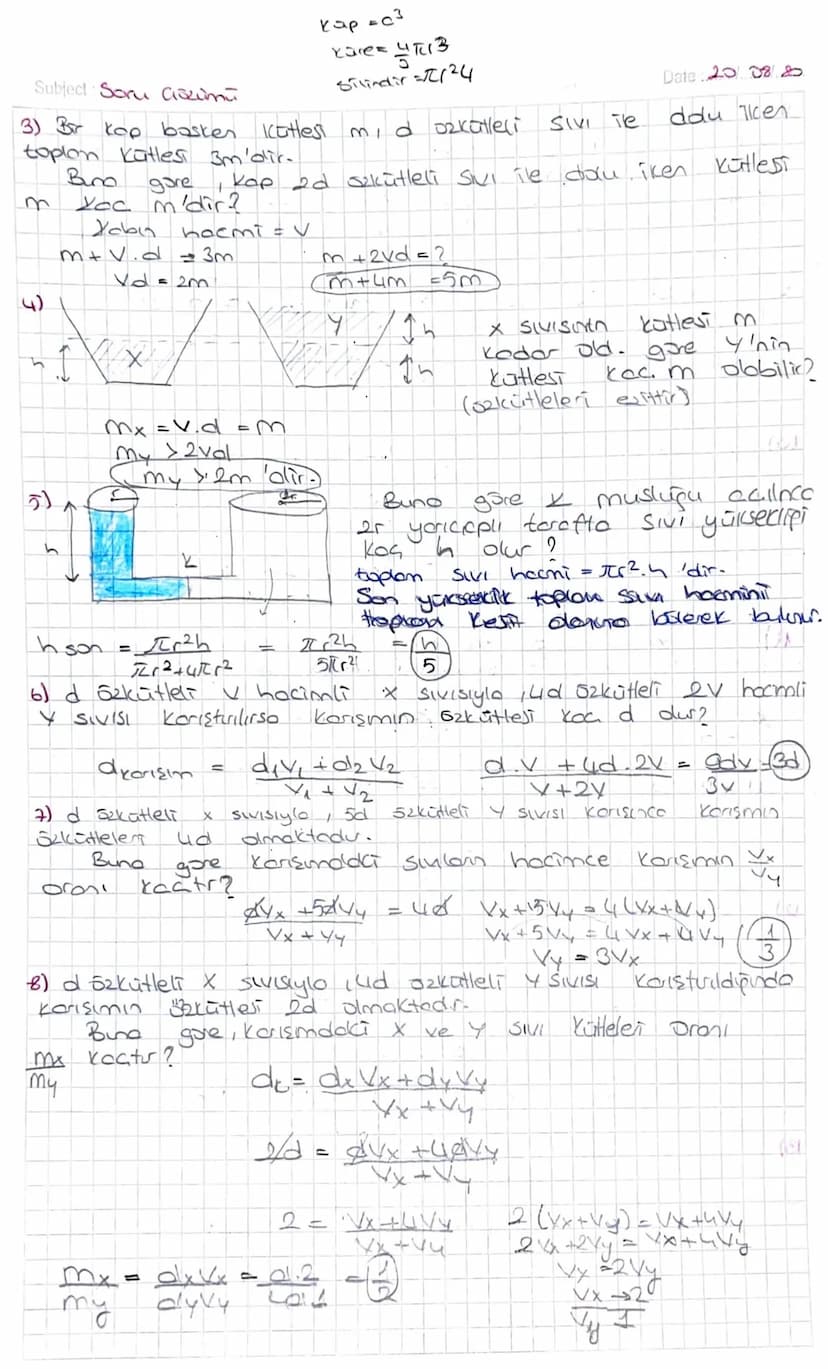 Kap = c³
Küre = 4/3 πr³
Silindir = πr²4
Subject: Soru Çözümü
Date: 20 08 20
3) Bir kap boşken kütlesi m, d özkütleli sıvı ile dolu iken
toplam kütlesi 3m'dir.
Buna göre, kap 2d özkütleli sıvı ile dolu iken kütlesi
m kaç m'dir?
Kabın hacmi = V
m + V.d = 3m
m + 2Vd = ?
Vd = 2m
m + 4m = 5m
4)
h
X
Y
h
h
X sıvısının kütlesi m
kadar old. göre Y'nin
kütlesi kaç m olabilir?
(özkütleleri eşittir)
mx = V.d = m
my > 2Vd
my > 2m 'dir.
5)
r
2r
h
K
Buna göre K musluğu açılınca
2r yarıçaplı tarafta sıvı yüksekliği
kaç h olur?
toplam sıvı hacmi = πr².h 'dir.
Son yükseklik toplam sıvı hacmini
toplam kesit alanına bölerek bulunur.
h son = πr²h / πr²+4πr² = πr²h / 5πr² = h/5
6) d özkütleli V hacimli X sıvısıyla, 4d özkütleli 2V hacimli
Y sıvısı karıştırılırsa karışımın özkütlesi kaç d dur?
dkarışım = d₁V₁ + d₂V₂ / V₁ + V₂
d.V + 4d.2V / V+2V = 9dV / 3V = 3d
7) d özkütleli X sıvısıyla, 5d özkütleli Y sıvısı karışınca karışımın
özkütleleri 4d olmaktadır.
Buna göre karışımdaki sıvıların hacimce karışımın Vx/Vy
oranı kaçtır?
dVx + 5dVy / Vx + Vy = 4d
Vx + 5Vy = 4(Vx+Vy)
Vx + 5Vy = 4Vx + 4Vy
Vy = 3Vx
1/3
8) d özkütleli X sıvısıyla, 4d özkütleli Y sıvısı karıştırıldığında
karışımın özkütlesi 2d olmaktadır.
Buna göre, karışımdaki X ve Y sıvı kütleleri oranı
mx/my kaçtır?
dk = dxVx + dyVy / Vx + Vy
2d = dVx + 4dVy / Vx + Vy
2 = Vx + 4Vy / Vx + Vy
2(Vx+Vy) = Vx+4Vy
2Vx+2Vy = Vx+4Vy
Vx = 2Vy
Vx → 2
Vy 1
mx/my = dxVx / dyVy = d.2 / 4d.1 = 1/2